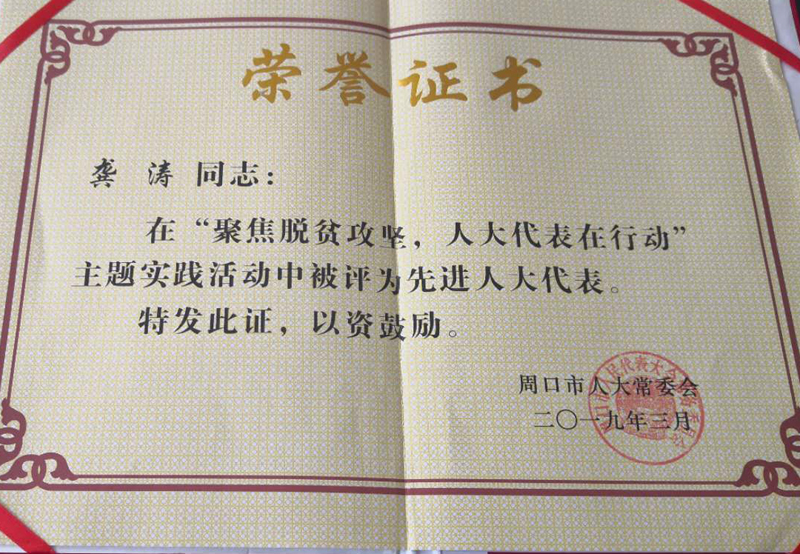 荣誉证书
龚 涛 同志：
在“聚焦脱贫攻坚，人大代表在行动”
主题实践活动中被评为先进人大代表。
特发此证，以资鼓励。
周口市人大常委会
二〇一九年三月